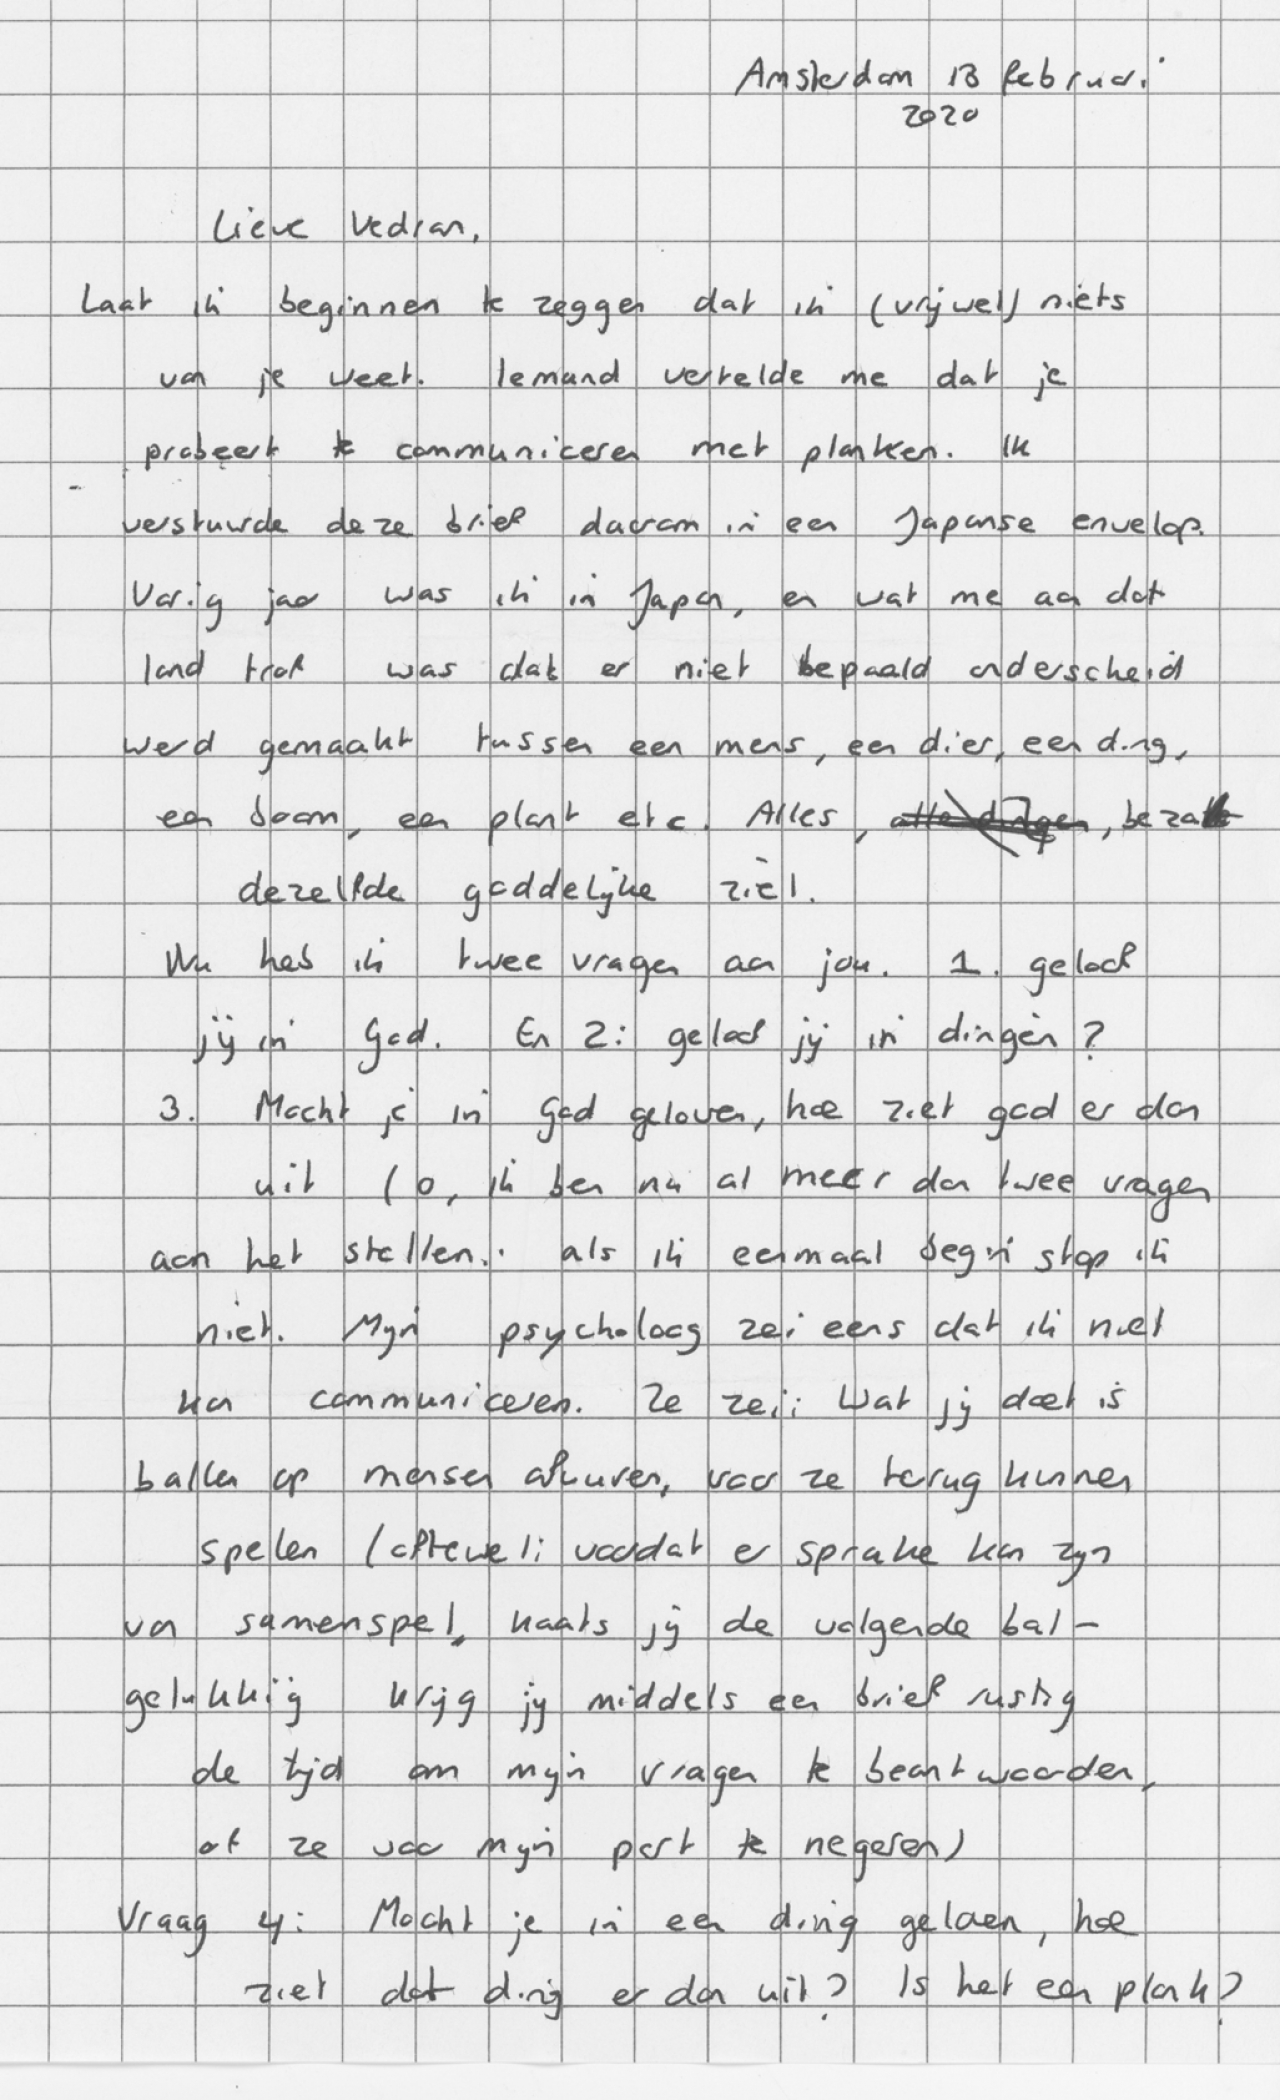 Amsterdam 13 februari
2020
Lieve Vedran,
Laat ik beginnen te zeggen dat ik (vrijwel) niets
van je weet. Iemand vertelde me dat je
probeert te communiceren met planken. Ik
verstuurde deze brief daarom in een Japanse envelop.
Vorig jaar was ik in Japan, en wat me aan dat
land trof was dat er niet bepaald onderscheid
werd gemaakt tussen een mens, een dier, een ding,
een boom, een plant etc. Alles, alle dingen, bezat
dezelfde goddelijke ziel.
Nu heb ik twee vragen aan jou. 1. geloof
jij in God. En 2: geloof jij in dingen?
3. Mocht je in God geloven, hoe ziet god er dan
uit (o, ik ben nu al meer dan twee vragen
aan het stellen.. als ik eenmaal begin stop ik
niet. Mijn psycholoog zei eens dat ik niet
kan communiceren. Ze zei: Wat jij doet is
ballen op mensen afvuren, voor ze terug kunnen
spelen (oftewel: voordat er sprake kan zijn
van samenspel, kaats jij de volgende bal –
gelukkig krijg jij middels een brief rustig
de tijd om mijn vragen te beantwoorden,
of ze voor mijn part te negeren)
Vraag 4: Mocht je in een ding geloven, hoe
ziet dat ding er dan uit? Is het een plank?